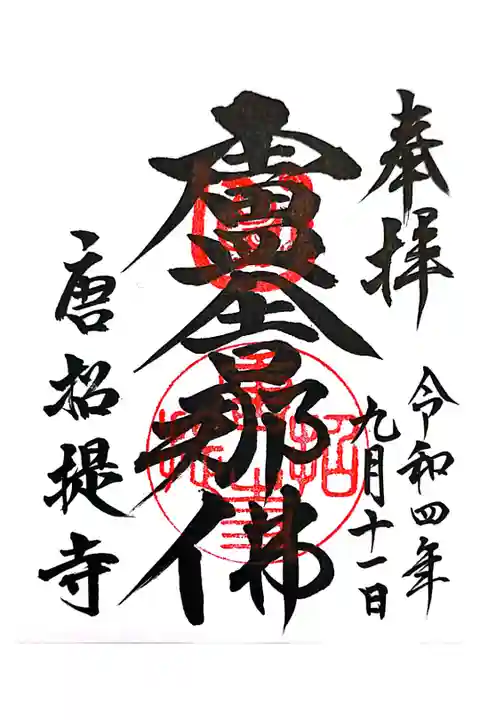 奉拝
令和四年
九月十一日
盧舎那佛
唐招提寺